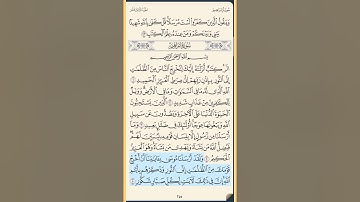 وَيَقُولُ ٱلَّذِينَ كَفَرُواْ لَسْتَ مُرْسَلًا قُلْ كَفَىٰ بِٱللَّهِ شَهِيدًۢا
بَيْنِي وَبَيْنَكُمْ وَمَنْ عِندَهُۥ عِلْمُ ٱلْكِتَٰبِ ٤٣
سُورَةُ إِبْرَاهِيمَ
بِسْمِ ٱللَّهِ ٱلرَّحْمَٰنِ ٱلرَّحِيمِ
الٓر كِتَٰبٌ أَنزَلْنَٰهُ إِلَيْكَ لِتُخْرِجَ ٱلنَّاسَ مِنَ ٱلظُّلُمَٰتِ
إِلَى ٱلنُّورِ بِإِذْنِ رَبِّهِمْ إِلَىٰ صِرَٰطِ ٱلْعَزِيزِ ٱلْحَمِيدِ ١
ٱللَّهِ ٱلَّذِي لَهُۥ مَا فِي ٱلسَّمَٰوَٰتِ وَمَا فِي ٱلْأَرْضِ وَوَيْلٌ
لِّلْكَٰفِرِينَ مِنْ عَذَابٍ شَدِيدٍ ٢ ٱلَّذِينَ يَسْتَحِبُّونَ
ٱلْحَيَوٰةَ ٱلدُّنْيَا عَلَى ٱلْأٓخِرَةِ وَيَصُدُّونَ عَن سَبِيلِ
ٱللَّهِ وَيَبْغُونَهَا عِوَجًا أُوْلَٰٓئِكَ فِي ضَلَٰلٍۭ بَعِيدٍ ٣ وَمَآ
أَرْسَلْنَا مِن رَّسُولٍ إِلَّا بِلِسَانِ قَوْمِهِۦ لِيُبَيِّنَ لَهُمْ
فَيُضِلُّ ٱللَّهُ مَن يَشَآءُ وَيَهْدِي مَن يَشَآءُ وَهُوَ ٱلْعَزِيزُ
ٱلْحَكِيمُ ٤ وَلَقَدْ أَرْسَلْنَا مُوسَىٰ بِـَٔايَٰتِنَآ أَنْ أَخْرِجْ
قَوْمَكَ مِنَ ٱلظُّلُمَٰتِ إِلَى ٱلنُّورِ وَذَكِّرْهُم بِأَيَّىٰمِ
ٱللَّهِ إِنَّ فِي ذَٰلِكَ لَأٓيَٰتٍ لِّكُلِّ صَبَّارٍ شَكُورٍ ٥
٢٥٥